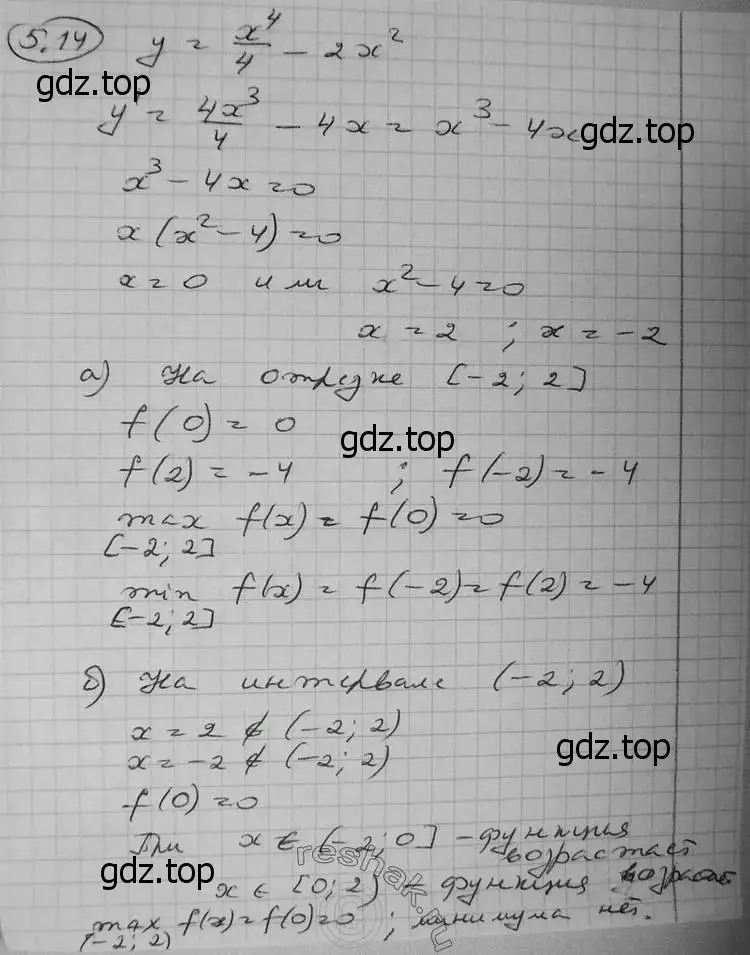 5.14 y = x⁴/4 - 2x²
gdz.top
y' = 4x³/4 - 4x = x³ - 4x
gdz.top
x³ - 4x = 0
x (x² - 4) = 0
x = 0 или x² - 4 = 0
x = 2 ; x = -2
а) На отрезке [-2; 2]
f(0) = 0
gdz.top
f(2) = -4 ; f(-2) = -4
max f(x) = f(0) = 0
[-2; 2]
min f(x) = f(-2) = f(2) = -4
[-2; 2]
б) На интервале (-2; 2)
x = 2 ∉ (-2; 2)
x = -2 ∉ (-2; 2)
gdz.top
f(0) = 0
При x ∈ (-2; 0] - функция
возрастает
gdz.top
reshak.ru
x ∈ [0; 2) - функция возрастает
max f(x) = f(0) = 0 ; минимума нет.
(-2; 2)